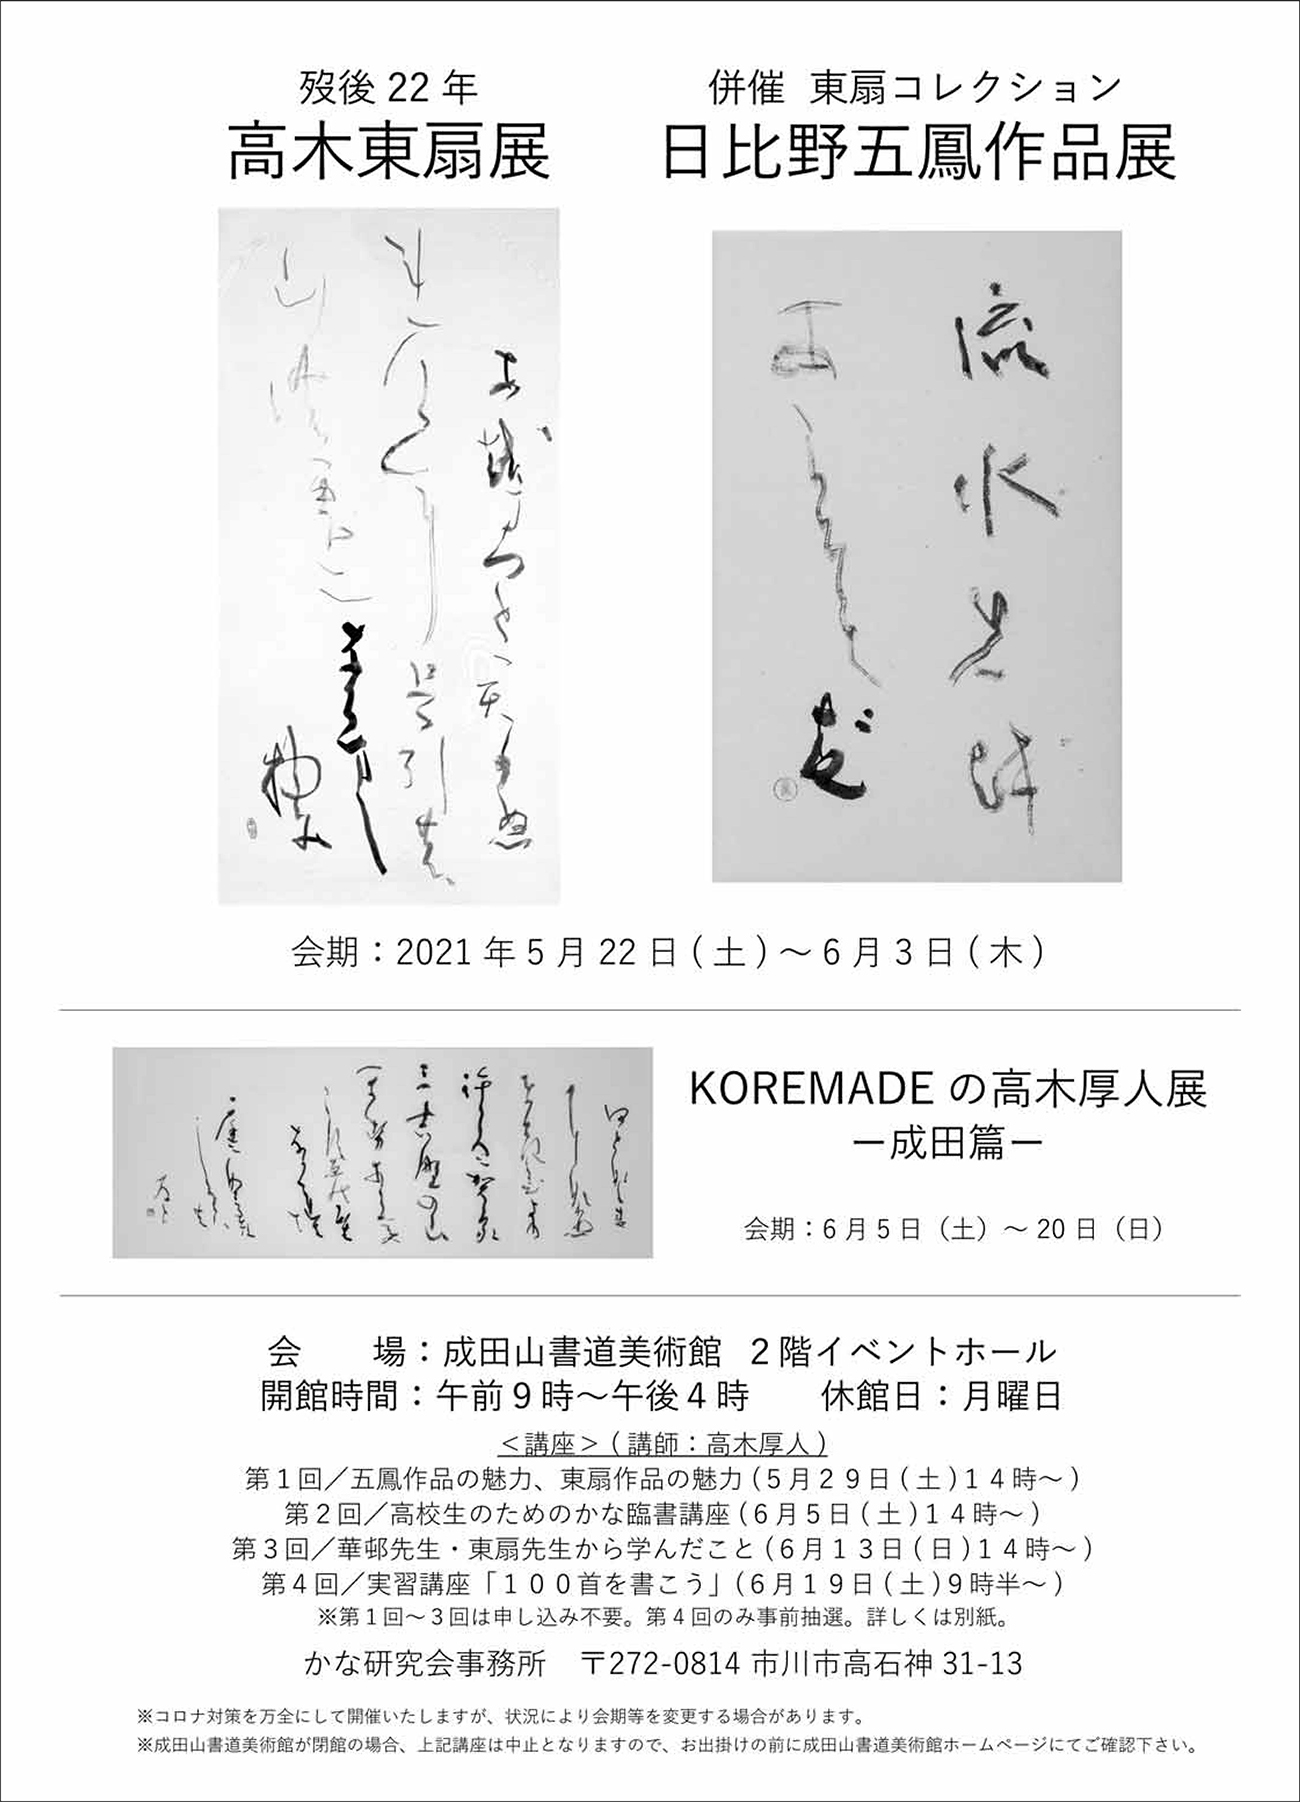 歿後 22 年
高木東扇展
併催 東扇コレクション
日比野五鳳作品展
流水
会期：2021 年 5 月 22 日 ( 土 ) ～ 6 月 3 日 ( 木 )
KOREMADE の高木厚人展
ー成田篇ー
会期：6 月 5 日（土）～ 20 日（日）
会　　場：成田山書道美術館 ２階イベントホール
開館時間：午前９時～午後４時　　休館日：月曜日
＜講座＞ ( 講師：高木厚人 )
第１回／五鳳作品の魅力、東扇作品の魅力 (５月２９日 ( 土 )１４時～ )
第２回／高校生のためのかな臨書講座 (６月５日 ( 土 )１４時～ )
第３回／華邨先生・東扇先生から学んだこと (６月１３日 ( 日 )１４時～ )
第４回／実習講座「１００首を書こう」(６月１９日 ( 土 )９時半～ )
※第１回～３回は申し込み不要。第４回のみ事前抽選。詳しくは別紙。
かな研究会事務所　〒272-0814 市川市高石神 31-13
※コロナ対策を万全にして開催いたしますが、状況により会期等を変更する場合があります。
※成田山書道美術館が閉館の場合、上記講座は中止となりますので、お出掛けの前に成田山書道美術館ホームページにてご確認下さい。